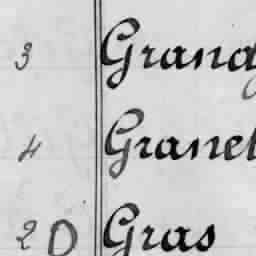 3 Grand
4 Granel
20 Gras